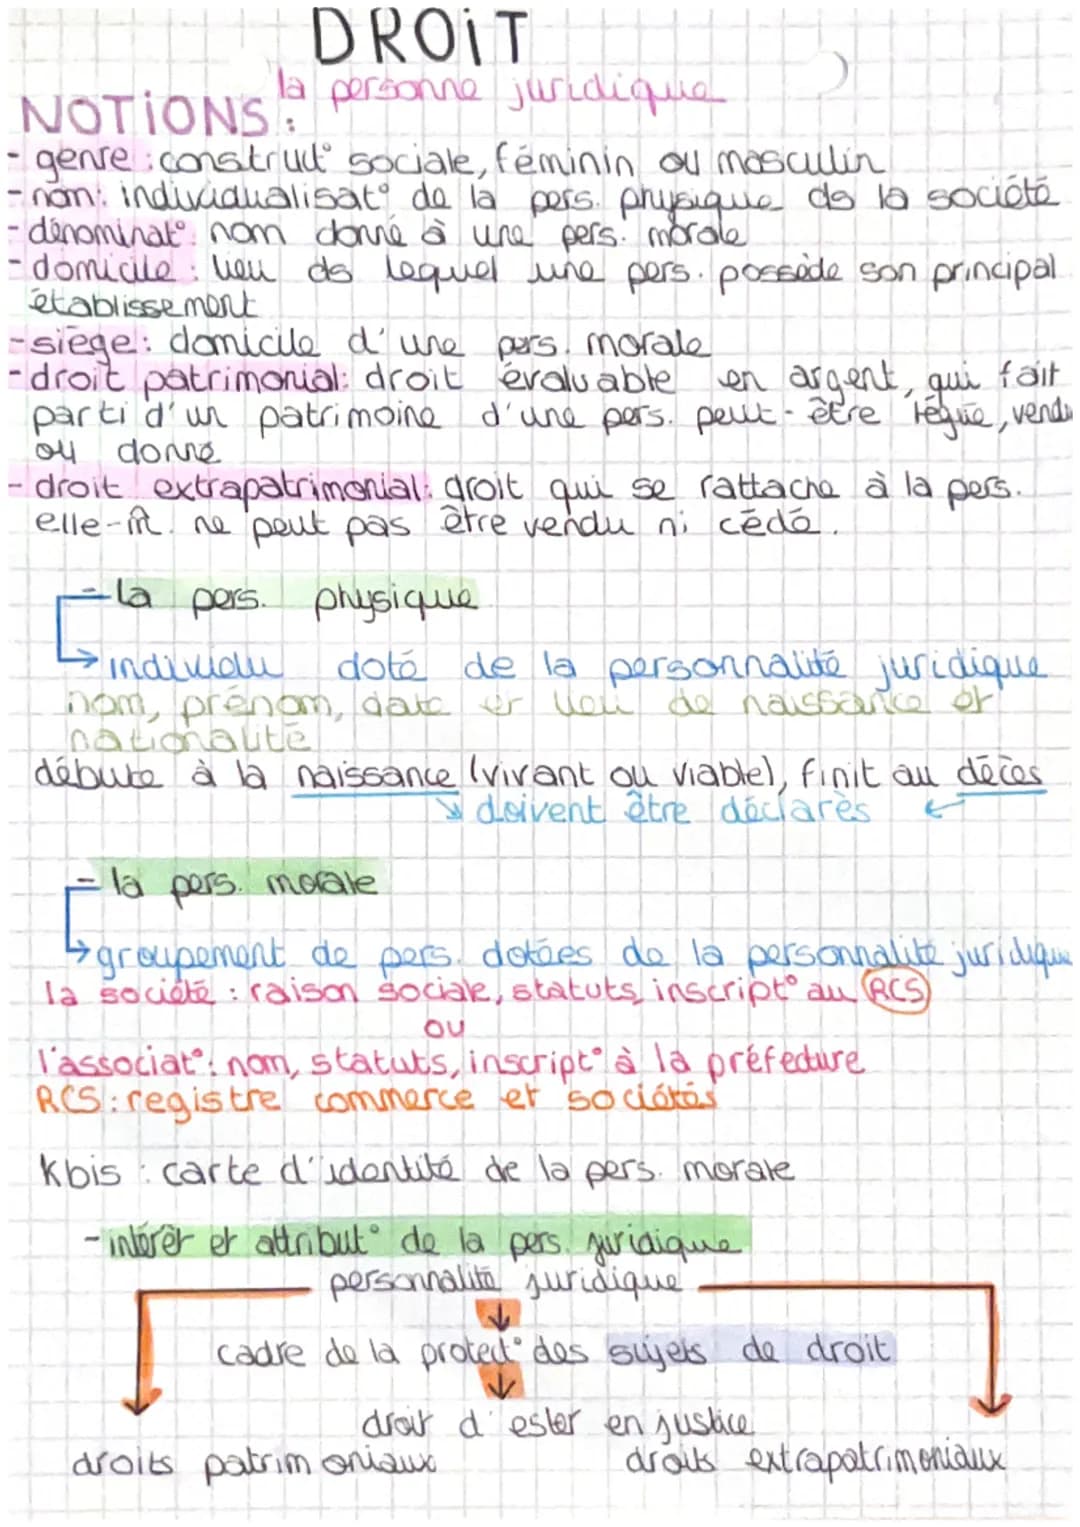 DROiT
la personne juridique
NOTiONS :
- genre : construct° sociale, féminin ou masculin
- nom : individualisat° de la pers. physique ds la société
- dénominat° : nom donné à une pers. morale
- domicile : lieu ds lequel une pers. possède son principal
établissement
- siège : domicile d'une pers. morale
- droit patrimonial : droit évaluable en argent, qui fait
parti d'un patrimoine d'une pers. peut-être légué, vendu
ou donné
- droit extrapatrimonial : droit qui se rattache à la pers.
elle-m̂. ne peut pas être vendu ni cédé.
- la pers. physique
→ individu doté de la personnalité juridique
nom, prénom, date et lieu de naissance et
nationalité
débute à la naissance (vivant ou viable), finit au décès
↘ doivent être déclarés ↙
- la pers. morale
→ groupement de pers. dotées de la personnalité juridique
la société : raison sociale, statuts, inscript° au RCS
ou
l'associat° : nom, statuts, inscript° à la préfecture
RCS : registre commerce et sociétés
Kbis : carte d'identité de la pers. morale
- intérêt et attribut° de la pers. juridique
personnalité juridique
↓
cadre de la protect° des sujets de droit
↓
droit d'ester en justice
droits patrimoniaux droits extrapatrimoniaux